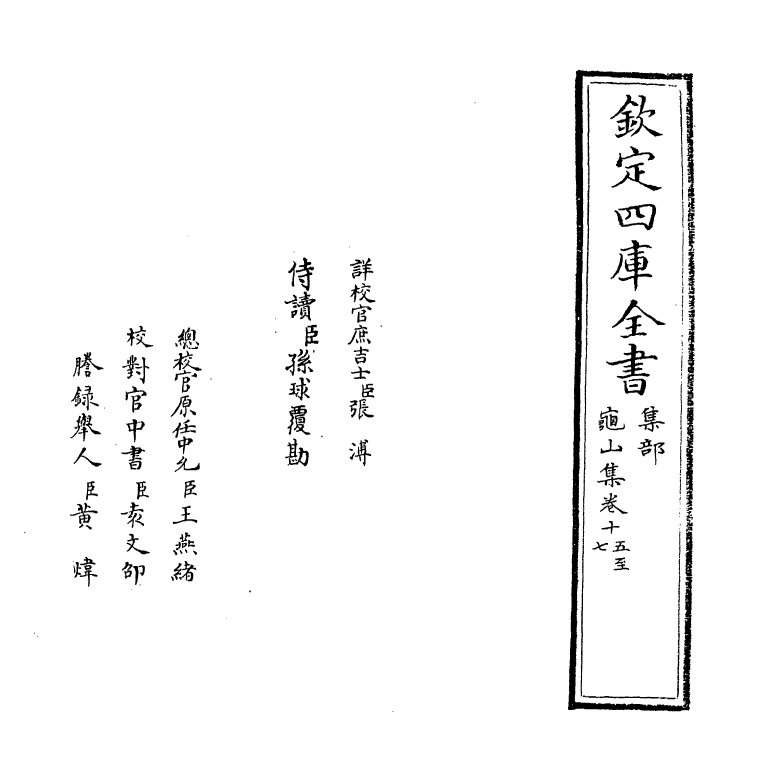 欽定四庫全書
集部
龜山集卷十五至七
詳校官庶吉士臣張溥
侍讀臣孫球覆勘
總校官原任中允臣王燕緒
校對官中書臣袁文邵
謄録舉人臣黄煒